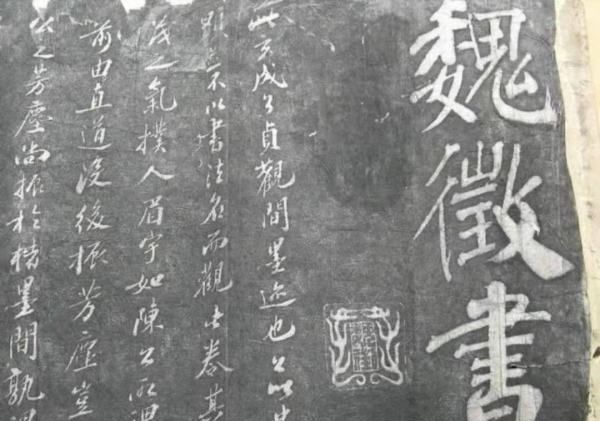 魏徵書
此文成公貞觀間墨迹也公以忠
顯不以書法名而觀此卷其
茂之氣撲人眉宇如陳公所謂
前由直道沒後振芳塵豈
公之芳塵尚振於楮墨間孰謂